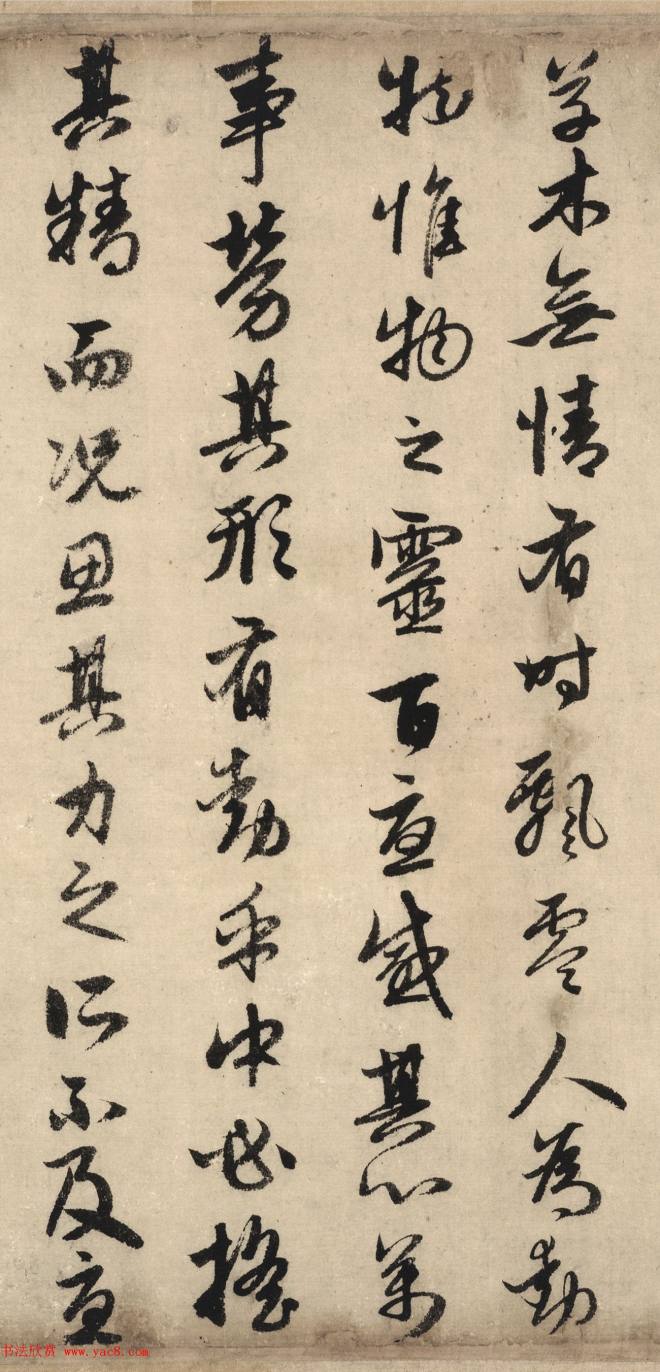 草木無情有時飄零人為動
物惟物之靈百憂感其心萬
事勞其形有動乎中必搖
其精而況思其力之所不及憂
书法欣赏 www.yac8.com